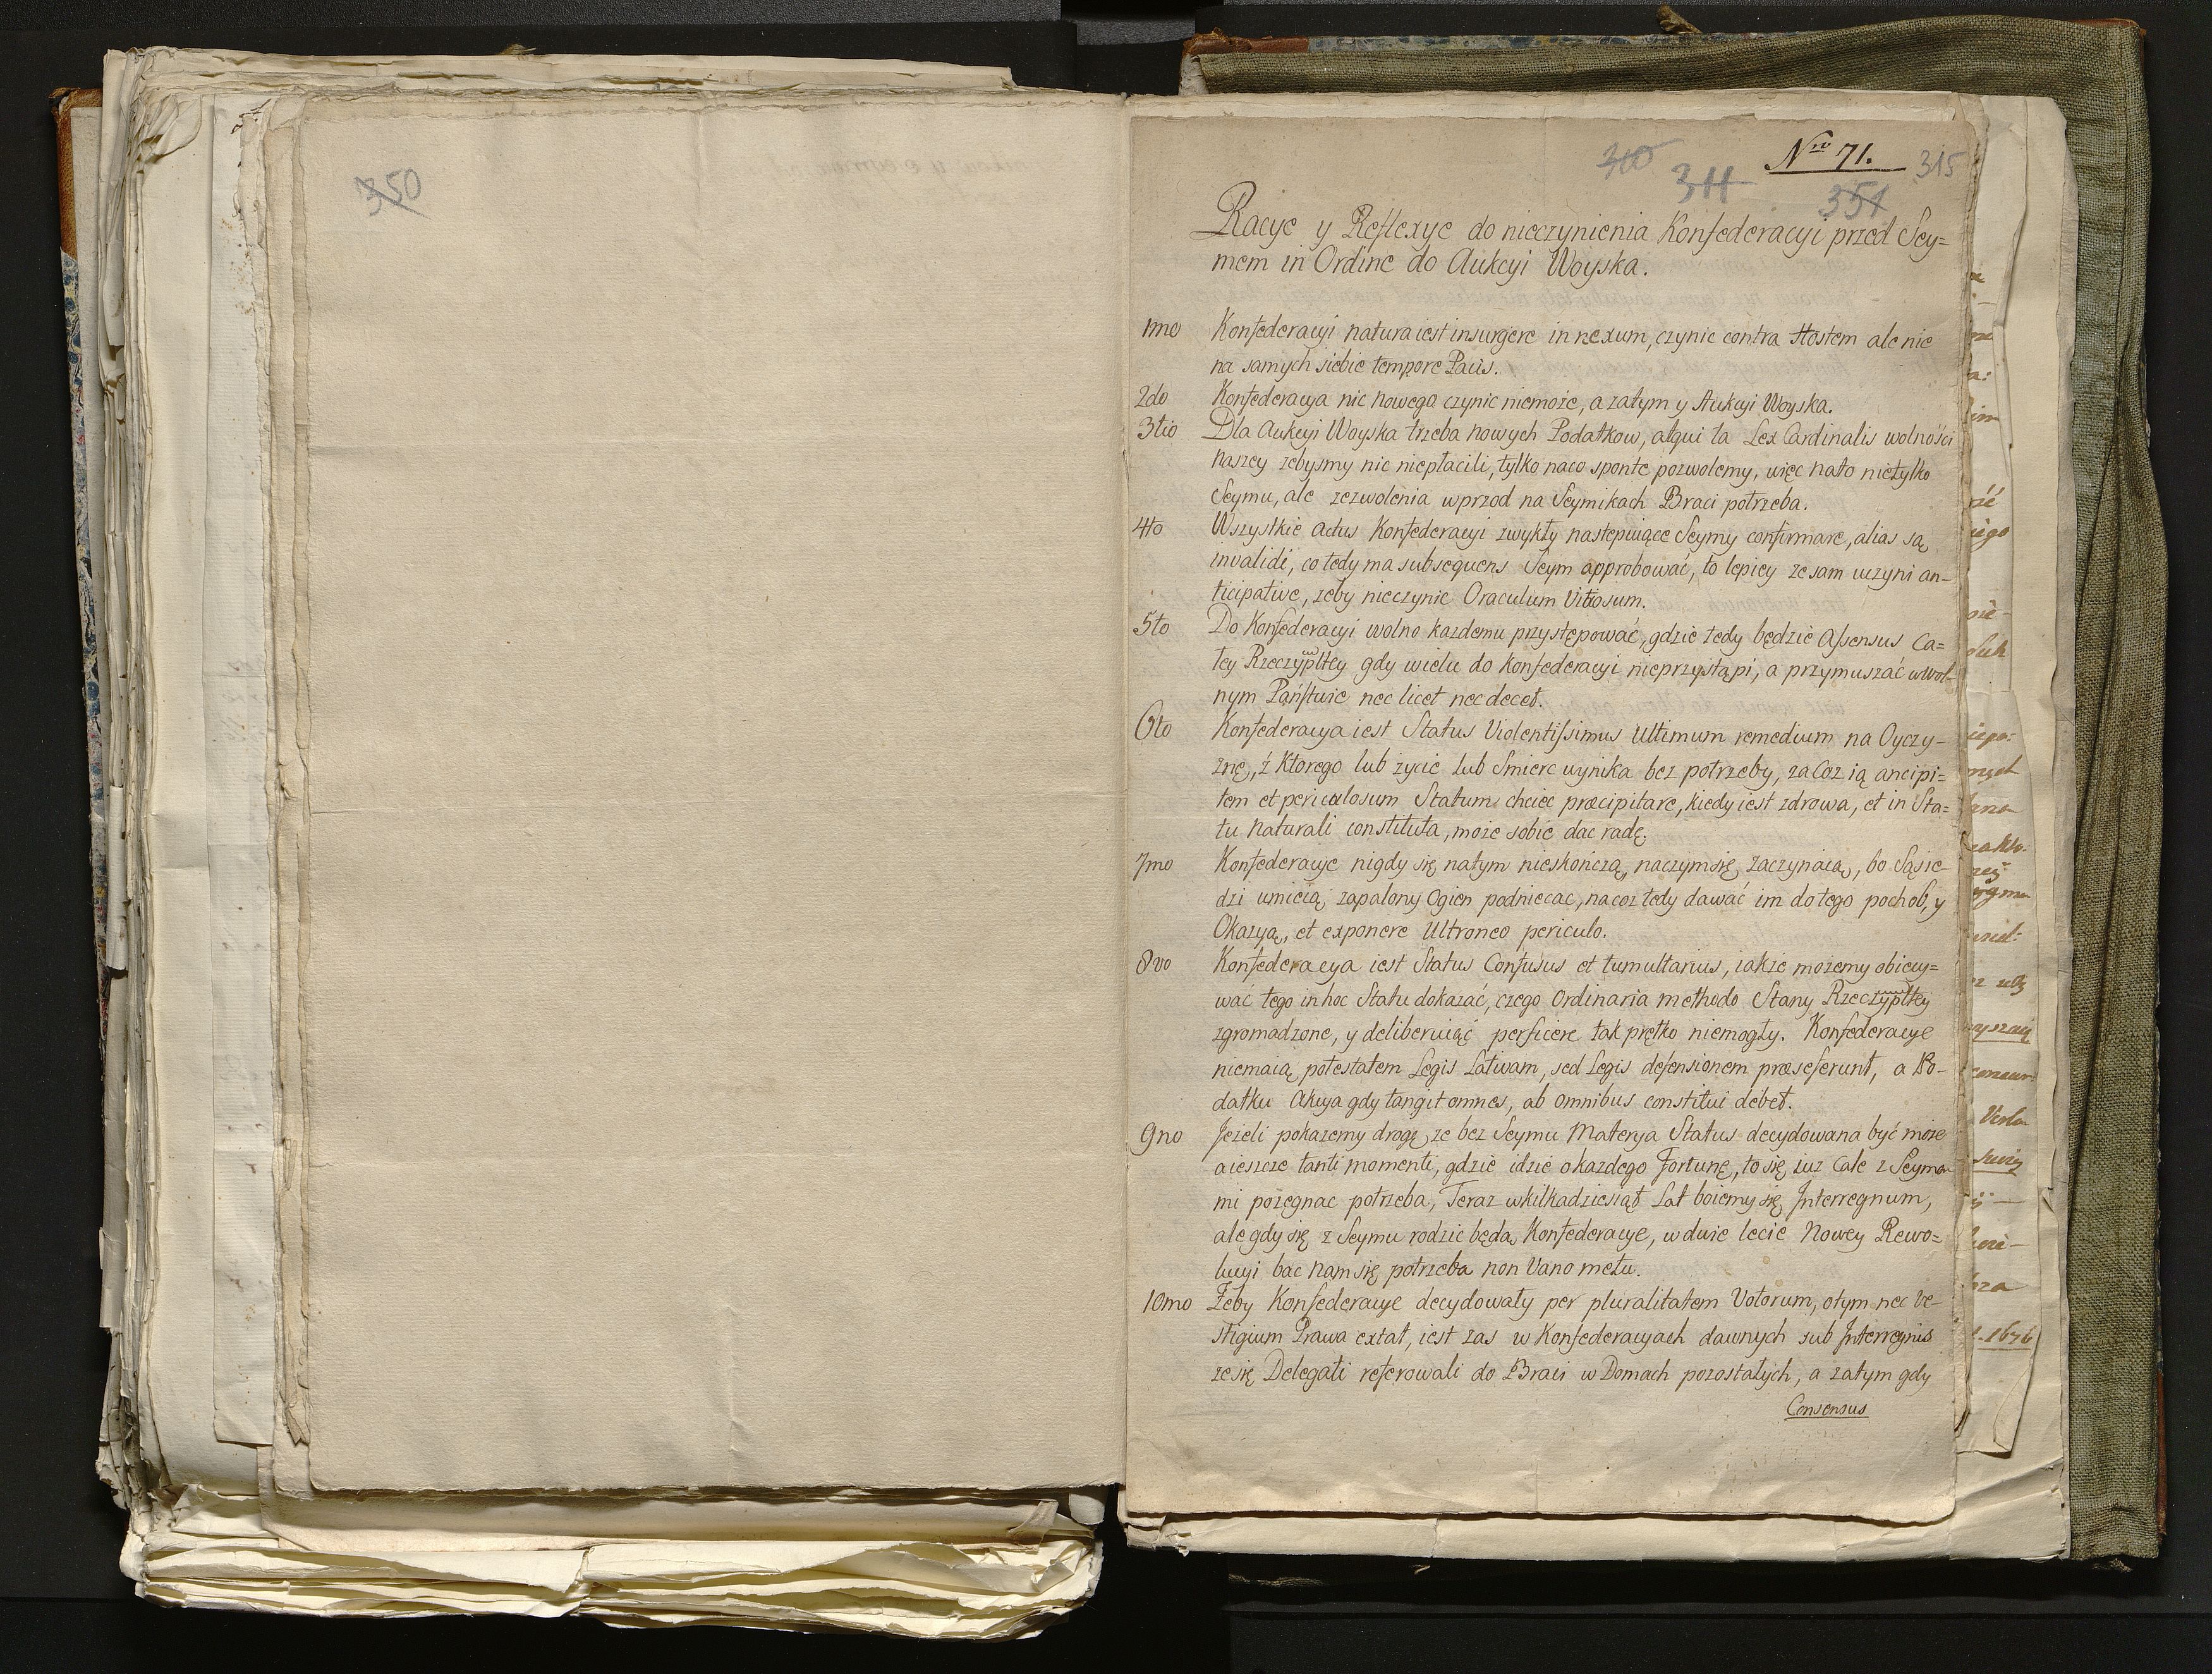 350
310
311
Nro 71.
315
351
Racye y Reflexye do nieczynienia Konfederacyi przed Sey=
mem in Ordine do Aukcyi Woyska.
1mo Konfederacyi natura iest insurgere in nexum, czynic contra Hostem ale nie
na samych siebie tempore Pacis.
2do Konfederacya nic nowego czynic niemoże, a zatym y Aukcyi Woyska.
3tio Dla Aukcyi Woyska trzeba nowych Podatkow, atqui ta Lex Cardinalis wolności
naszey zebysmy nic niepłacili, tylko naco sponte pozwolemy, więc nato nietylko
Seymu, ale zezwolenia wprzod na Seymikach Braci potrzeba.
4to Wszystkie actus Konfederacyi zwykły następuiące Seymy confirmare, alias są
invalidi, co tedy ma subsequens Seym approbować, to lepiey ze sam uczyni an-
ticipative, zeby nieczynic Oraculum Vitiosum.
5to Do Konfederacyi wolno kazdemu przystępować, gdzie tedy będzie Assensus Ca=
łey Rzeczypltey gdy wielu do Konfederacyi nieprzystąpi, a przymuszać w wol-
nym Państwie nec licet nec decet.
6to Konfederacya iest Status Violentissimus Ultimum remedium na Oyczy-
znę, z ktorego lub zycie lub Smierc wynika bez potrzeby, za Coz ią ancipi=
tem et periculosum Statum chciec præcipitare, kiedy iest zdrowa, et in Sta=
tu naturali constituta, może sobie dac radę.
7mo Konfederacye nigdy się natym nieskończą, naczym się zaczynaią, bo Sąsie-
dzi umieią zapalony Ogien podniecac, nacoz tedy dawać im do tego pochob, y
Okazyą, et exponere Ultroneo periculo.
8vo Konfederacya iest Status Confusus et tumultarius, iakże możemy obiecy=
wać tego in hoc Statu dokazać, czego Ordinaria methodo Stany Rzeczypltey
zgromadzone, y deliberuiąć perficere tak prętko niemogły. Konfederacye
niemaią potestatem Legis Lativam, sed Legis defensionem præseferunt, a Po-
datku Akcya gdy tangit omnes, ab omnibus constitui debet.
9no Jeżeli pokazemy drogę, ze bez Seymu Materya Status decydowana być może
a ieszcze tanti momenti, gdzie idzie o kazdego Fortunę, to się iuz Cale z Seyma-
mi pozegnac potrzeba, Teraz w kilkadziesiąt Lat boiemy się Interregnum,
ale gdy się z Seymu rodzic będą Konfederacye, w dwie lecie Nowey Rewo=
lucyi bac nam się potrzeba non Vano metu.
10mo Zeby Konfederacye decydowały per pluralitatem Votorum, o tym nec ve-
stigium Prawa extat, iest zas w Konfederacyach dawnych sub Interregnis
ze się Delegati referowali do Braci w Domach pozostałych, a zatym gdy
Consensus
1676